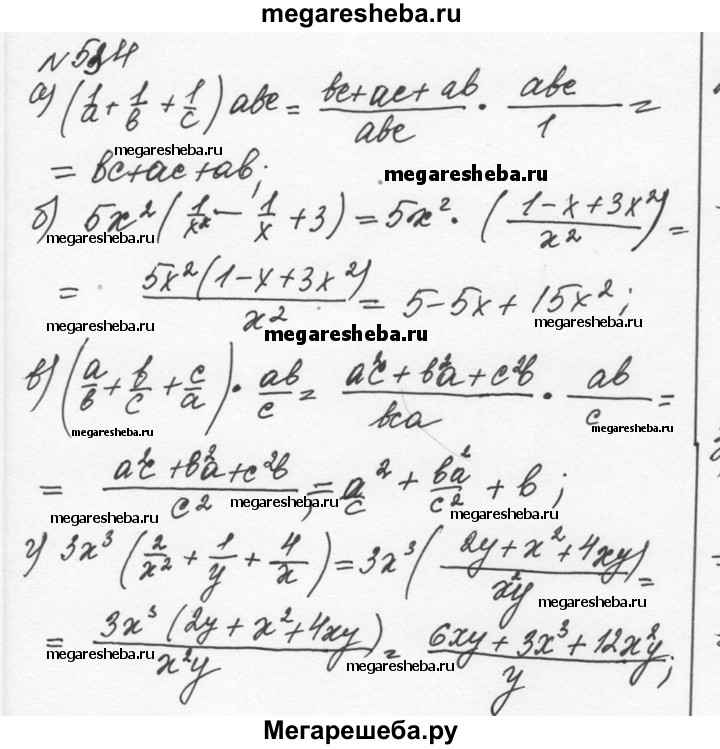 megaresheba.ru
№594
а) (1/a + 1/b + 1/c) abc = (bc+ac+ab)/abc · abc/1 =
megaresheba.ru megaresheba.ru
= bc+ac+ab;
б) 5x² (1/x² − 1/x + 3) = 5x² · ((1−x+3x²)/x²) =
megaresheba.ru megaresheba.ru megaresheba.ru
= 5x²(1−x+3x²)/x² = 5−5x+15x²;
megaresheba.ru megaresheba.ru
megaresheba.ru
в) (a/b + b/c + c/a) · ab/c = (a²c+b²a+c²b)/bca · ab/c =
megaresheba.ru megaresheba.ru
= (a²c+b²a+c²b)/c² = a²/c + b²a/c² + b;
megaresheba.ru megaresheba.ru megaresheba.ru
г) 3x³ (2/x² + 1/y + 4/x) = 3x³ ((2y+x²+4xy)/x²y) =
megaresheba.ru megaresheba.ru
= 3x³(2y+x²+4xy)/x²y = (6xy+3x³+12x²y)/y;
megaresheba.ru megaresheba.ru
Мегарешеба.ру